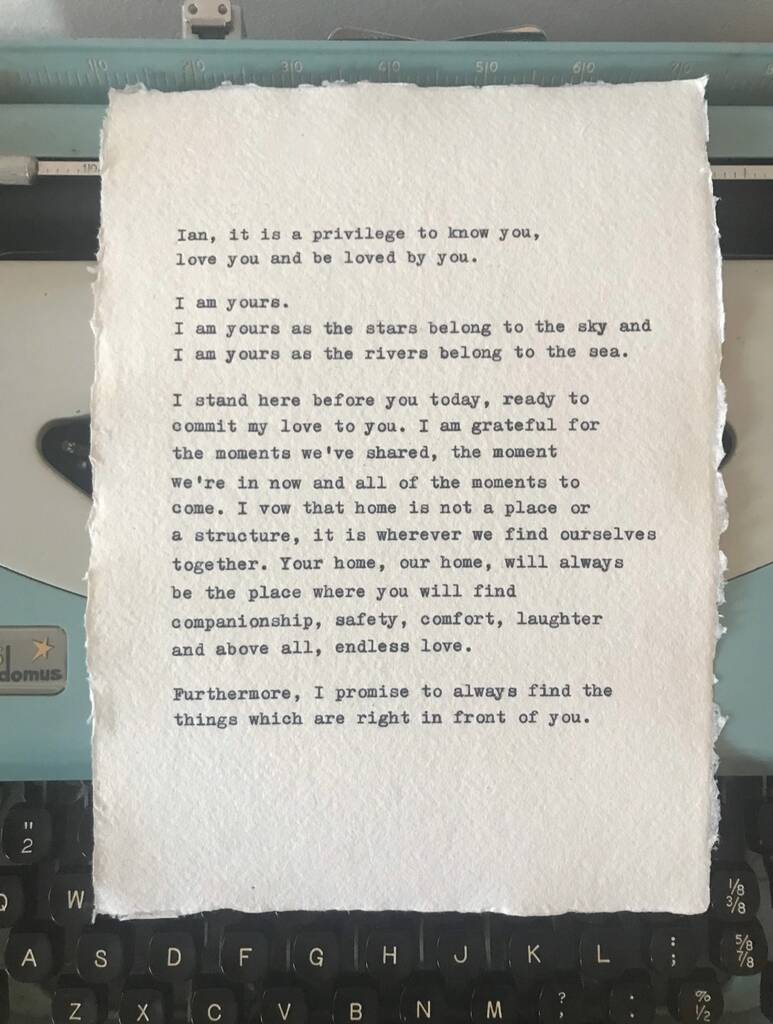 1|0 2|0 3|0 4|0 5|0 6|0 7|0
Ian, it is a privilege to know you,
love you and be loved by you.
I am yours.
I am yours as the stars belong to the sky and
I am yours as the rivers belong to the sea.
I stand here before you today, ready to
commit my love to you. I am grateful for
the moments we've shared, the moment
we're in now and all of the moments to
come. I vow that home is not a place or
a structure, it is wherever we find ourselves
together. Your home, our home, will always
be the place where you will find
companionship, safety, comfort, laughter
and above all, endless love.
Furthermore, I promise to always find the
things which are right in front of you.
domus
" 2
Q W ⅛ ⅜
A S D F G H J K L : ; ⅝ ⅞
Z X C V B N M ? , : . % ½